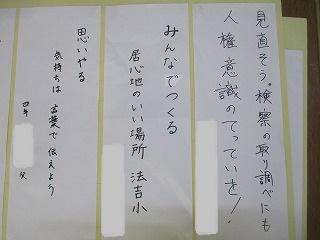 見直そう。検察の取り調べにも
人権意識のてっていを!
みんなでつくる
居心地のいい場所 法吉小
思いやる
気持ちは 言葉で 伝えよう
四年
父